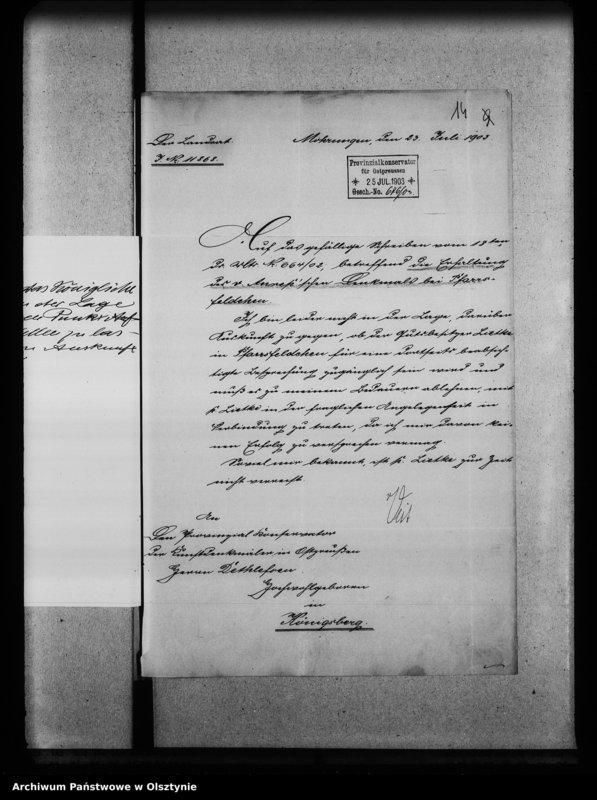 14
Der Landrat.
J. N. 4868.
Mohrungen, den 23. Juli 1903
Provinzialkonservator
für Ostpreussen
25 JUL. 1903
Gesch.-No.
Auf das gefällige Schreiben vom 18ten
betreffend die Erhaltung
des v. Denkmals bei Pfarrs-
feldchen.
Ich bin leider nicht in der Lage, darüber
Auskunft zu geben, ob der Gutsbesitzer Lietke
in Pfarrsfeldchen für eine dortseits beabsich-
tigte Besprechung zugänglich sein wird und
muß es zu meinem Bedauern ablehnen, mit
p. Lietke in der fraglichen Angelegenheit in
Verbindung zu treten, da ich mir davon kei-
nen Erfolg zu versprechen vermag.
Soviel mir bekannt, ist p. Lietke zur Zeit
nicht verreist.
Veit
An
Den Provinzial Konservator
der Kunstdenkmäler in Ostpreußen
Herrn Dethlefsen
Hochwohlgeboren
in
Königsberg.
das Königliche
in der Lage
zu las-
Auskunft
Archiwum Państwowe w Olsztynie